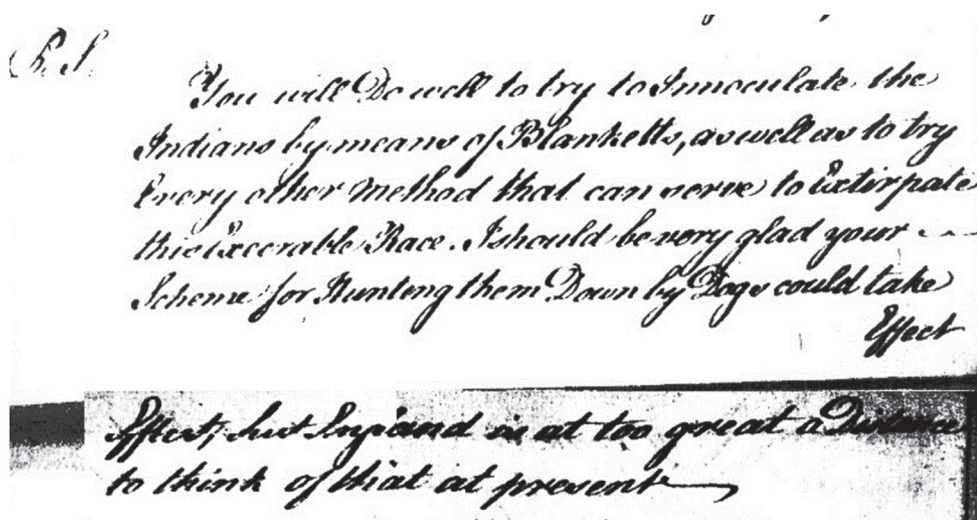 P.S.
You will Do well to try to Innoculate the
Indians by means of Blanketts, as well as to try
Every other method that can serve to Extirpate
this Execrable Race. I should be very glad your
Scheme for Hunting them Down by Dogs could take
Effect
Effect, but England is at too great a Distance
to think of that at present